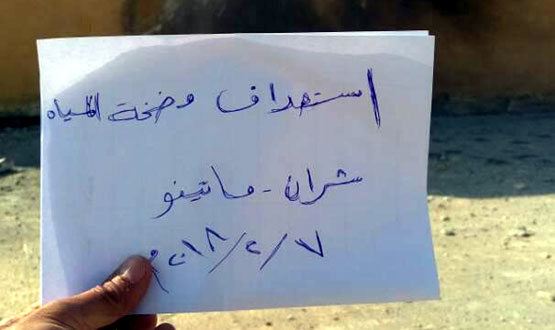 استهداف وضخة المياه
شران - ماتينو
٢٠١٨/٢/٧م